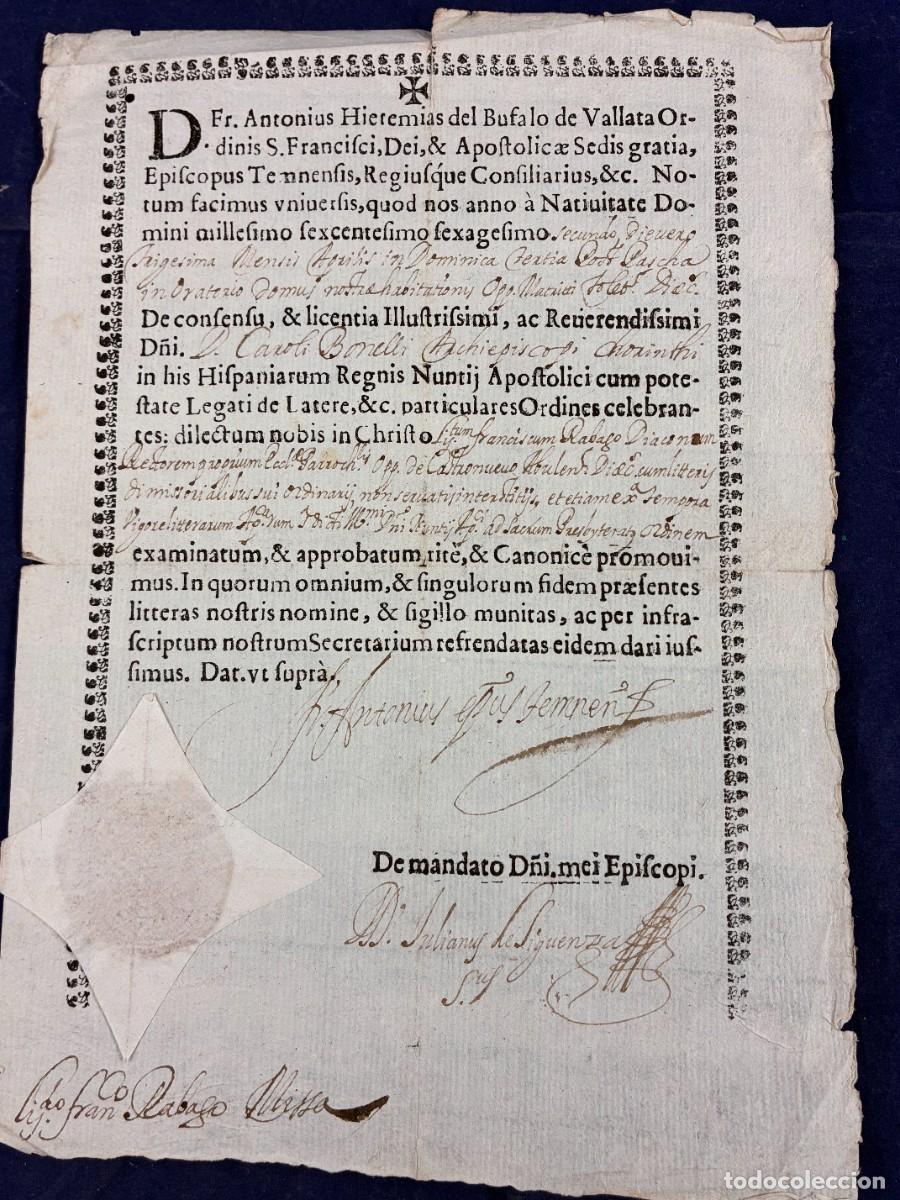 D. Fr. Antonius Hieremias del Bufalo de Vallata Or-
dinis S. Francisci, Dei, & Apostolicæ Sedis gratia,
Episcopus Temnensis, Regiusq́ue Consiliarius, &c. No-
tum facimus vniuersis, quod nos anno à Natiuitate Do-
mini millesimo sexcentesimo sexagesimo secundo, die vero
trigesima Mensis Aprilis in Dominica tertia Post Pascha
in Oratorio domus nostræ habitationis Opp. Matriti Tolet. Diœc.
De consensu, & licentia Illustrissimi, ac Reuerendissimi
Dñi. D. Caroli Bonelli Archiepiscopi Chorinthi
in his Hispaniarum Regnis Nuntij Apostolici cum pote-
state Legati de Latere, &c. particulares Ordines celebran-
tes: dilectum nobis in Christo franciscum Rabago Diaconum
Rectorem propiium Eccl. Parroch. Opp. de Castronuevo Abulens Diœc. cum litteris
dimissorialibus sui ordinarij, non servatis interstitijs, et etiam ex. tempora
vigore litterarum Dñi Nuntij ad Sacrum Presbyterat. ordinem
examinatum, & approbatum, ritè, & Canonicè promoui-
mus. In quorum omnium, & singulorum fidem præsentes
litteras nostris nomine, & sigillo munitas, ac per infra-
scriptum nostrum Secretarium refrendatas eidem dari ius-
simus. Dat. vt suprà.
fr. Antonius epus temnen
De mandato Dñi. mei Episcopi.
Julianus de Siguenza
franco Rabago Missa
todocoleccion